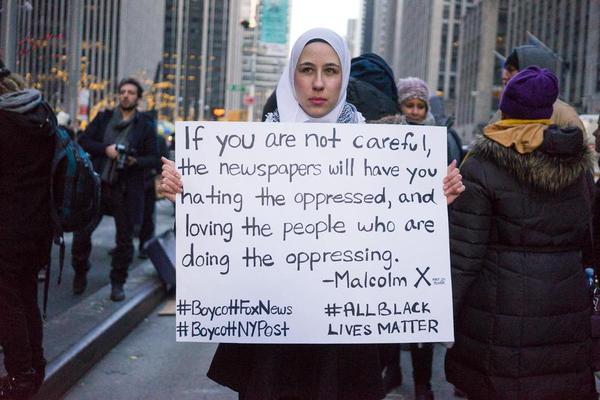 If you are not careful,
the newspapers will have you
hating the oppressed, and
loving the people who are
doing the oppressing.
-Malcolm X
#BoycottFoxNews
#BoycottNYPost
#ALLBLACK
LIVES MATTER